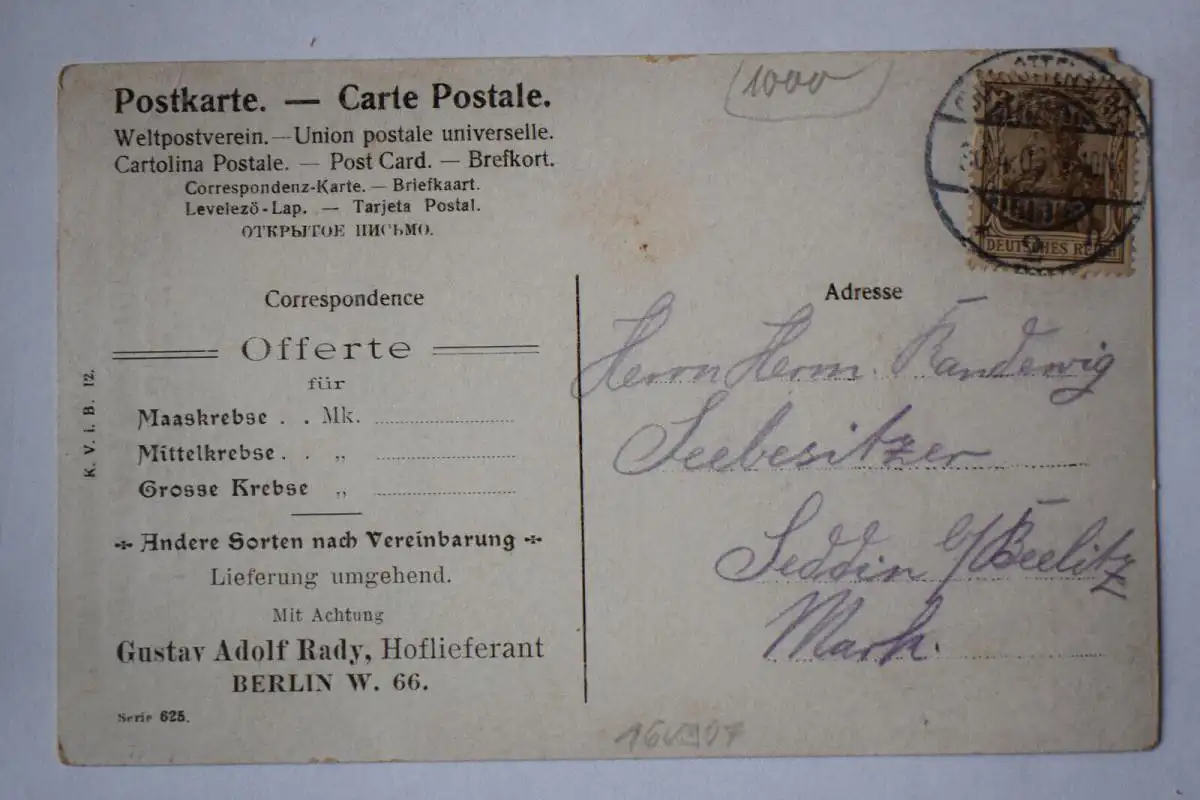 Postkarte. — Carte Postale.
Weltpostverein. — Union postale universelle.
Cartolina Postale. — Post Card. — Brefkort.
Correspondenz-Karte. — Briefkaart.
Levelezö-Lap. — Tarjeta Postal.
ОТКРЫТОЕ ПИСЬМО.
1000
3
DEUTSCHES REICH
Correspondence
Offerte
für
Maaskrebse . . Mk.
Mittelkrebse . . „
Grosse Krebse „
÷ Andere Sorten nach Vereinbarung ÷
Lieferung umgehend.
Mit Achtung
Gustav Adolf Rady, Hoflieferant
BERLIN W. 66.
Serie 625.
K. V. i. B. 12.
Adresse
Herrn Herm. Banderwig
Seebesitzer
Seddin b/Beelitz
Mark.